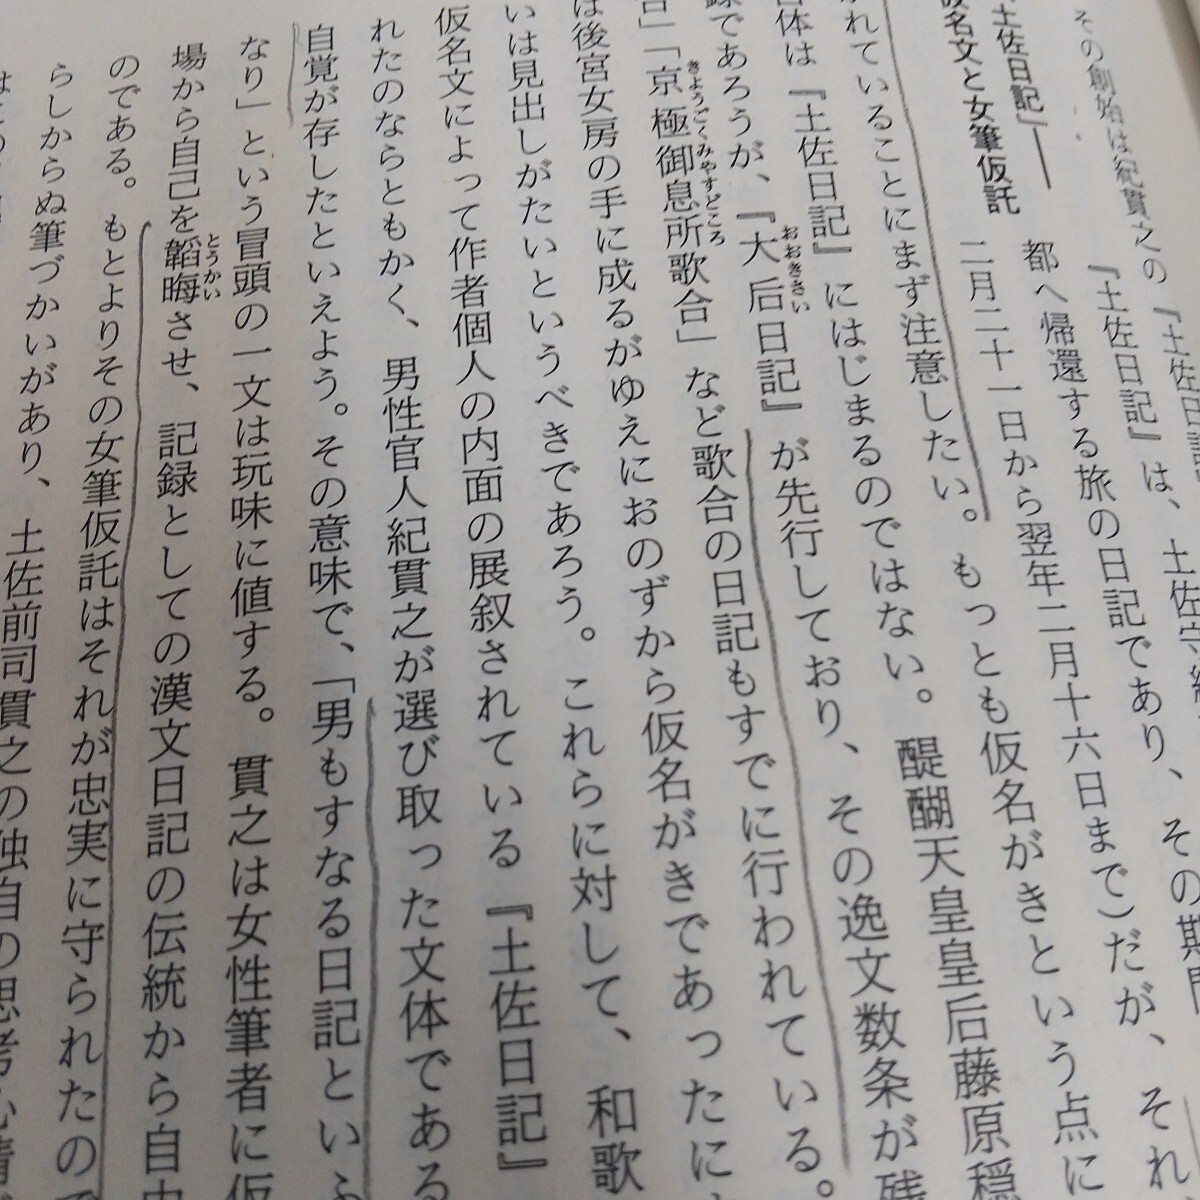 その創始は紀貫之の『土佐日記
『土佐日記』は、土佐守
土佐日記』――
仮名文と女筆仮託
都へ帰還する旅の日記であり、その期間
二月二十一日から翌年二月十六日まで）だが、それ
れていることにまず注意したい。もっとも仮名がきという点に
体は『土佐日記』にはじまるのではない。醍醐天皇皇后藤原穏
録であろうが、『大后日記』が先行しており、その逸文数条が残
おおきさい
「京極御息所歌合」など歌合の日記もすでに行われている。
きょうごくみやすどころ
は後宮女房の手に成るがゆえにおのずから仮名がきであったに
いは見出しがたいというべきであろう。これらに対して、和歌
仮名文によって作者個人の内面の展叙されている『土佐日記』
れたのならともかく、男性官人紀貫之が選び取った文体である
自覚が存したといえよう。その意味で、「男もすなる日記といふ
なり」という冒頭の一文は玩味に値する。貫之は女性筆者に仮
場から自己を韜晦させ、記録としての漢文日記の伝統から自由
とうかい
のである。もとよりその女筆仮託はそれが忠実に守られたので
らしからぬ筆づかいがあり、土佐前司貫之の独自の思考や心情